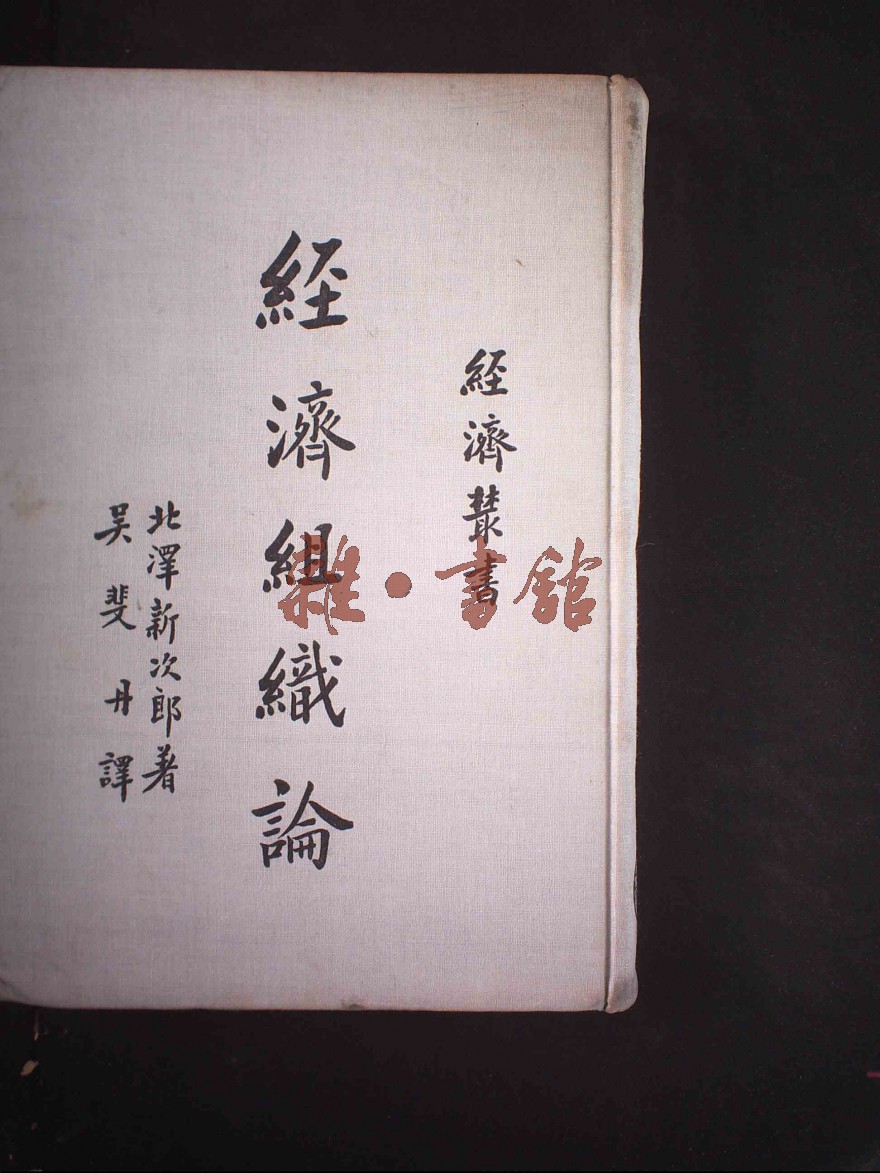 経濟叢書
経濟組織論
北澤新次郎著
吴斐丹譯
雜·書館